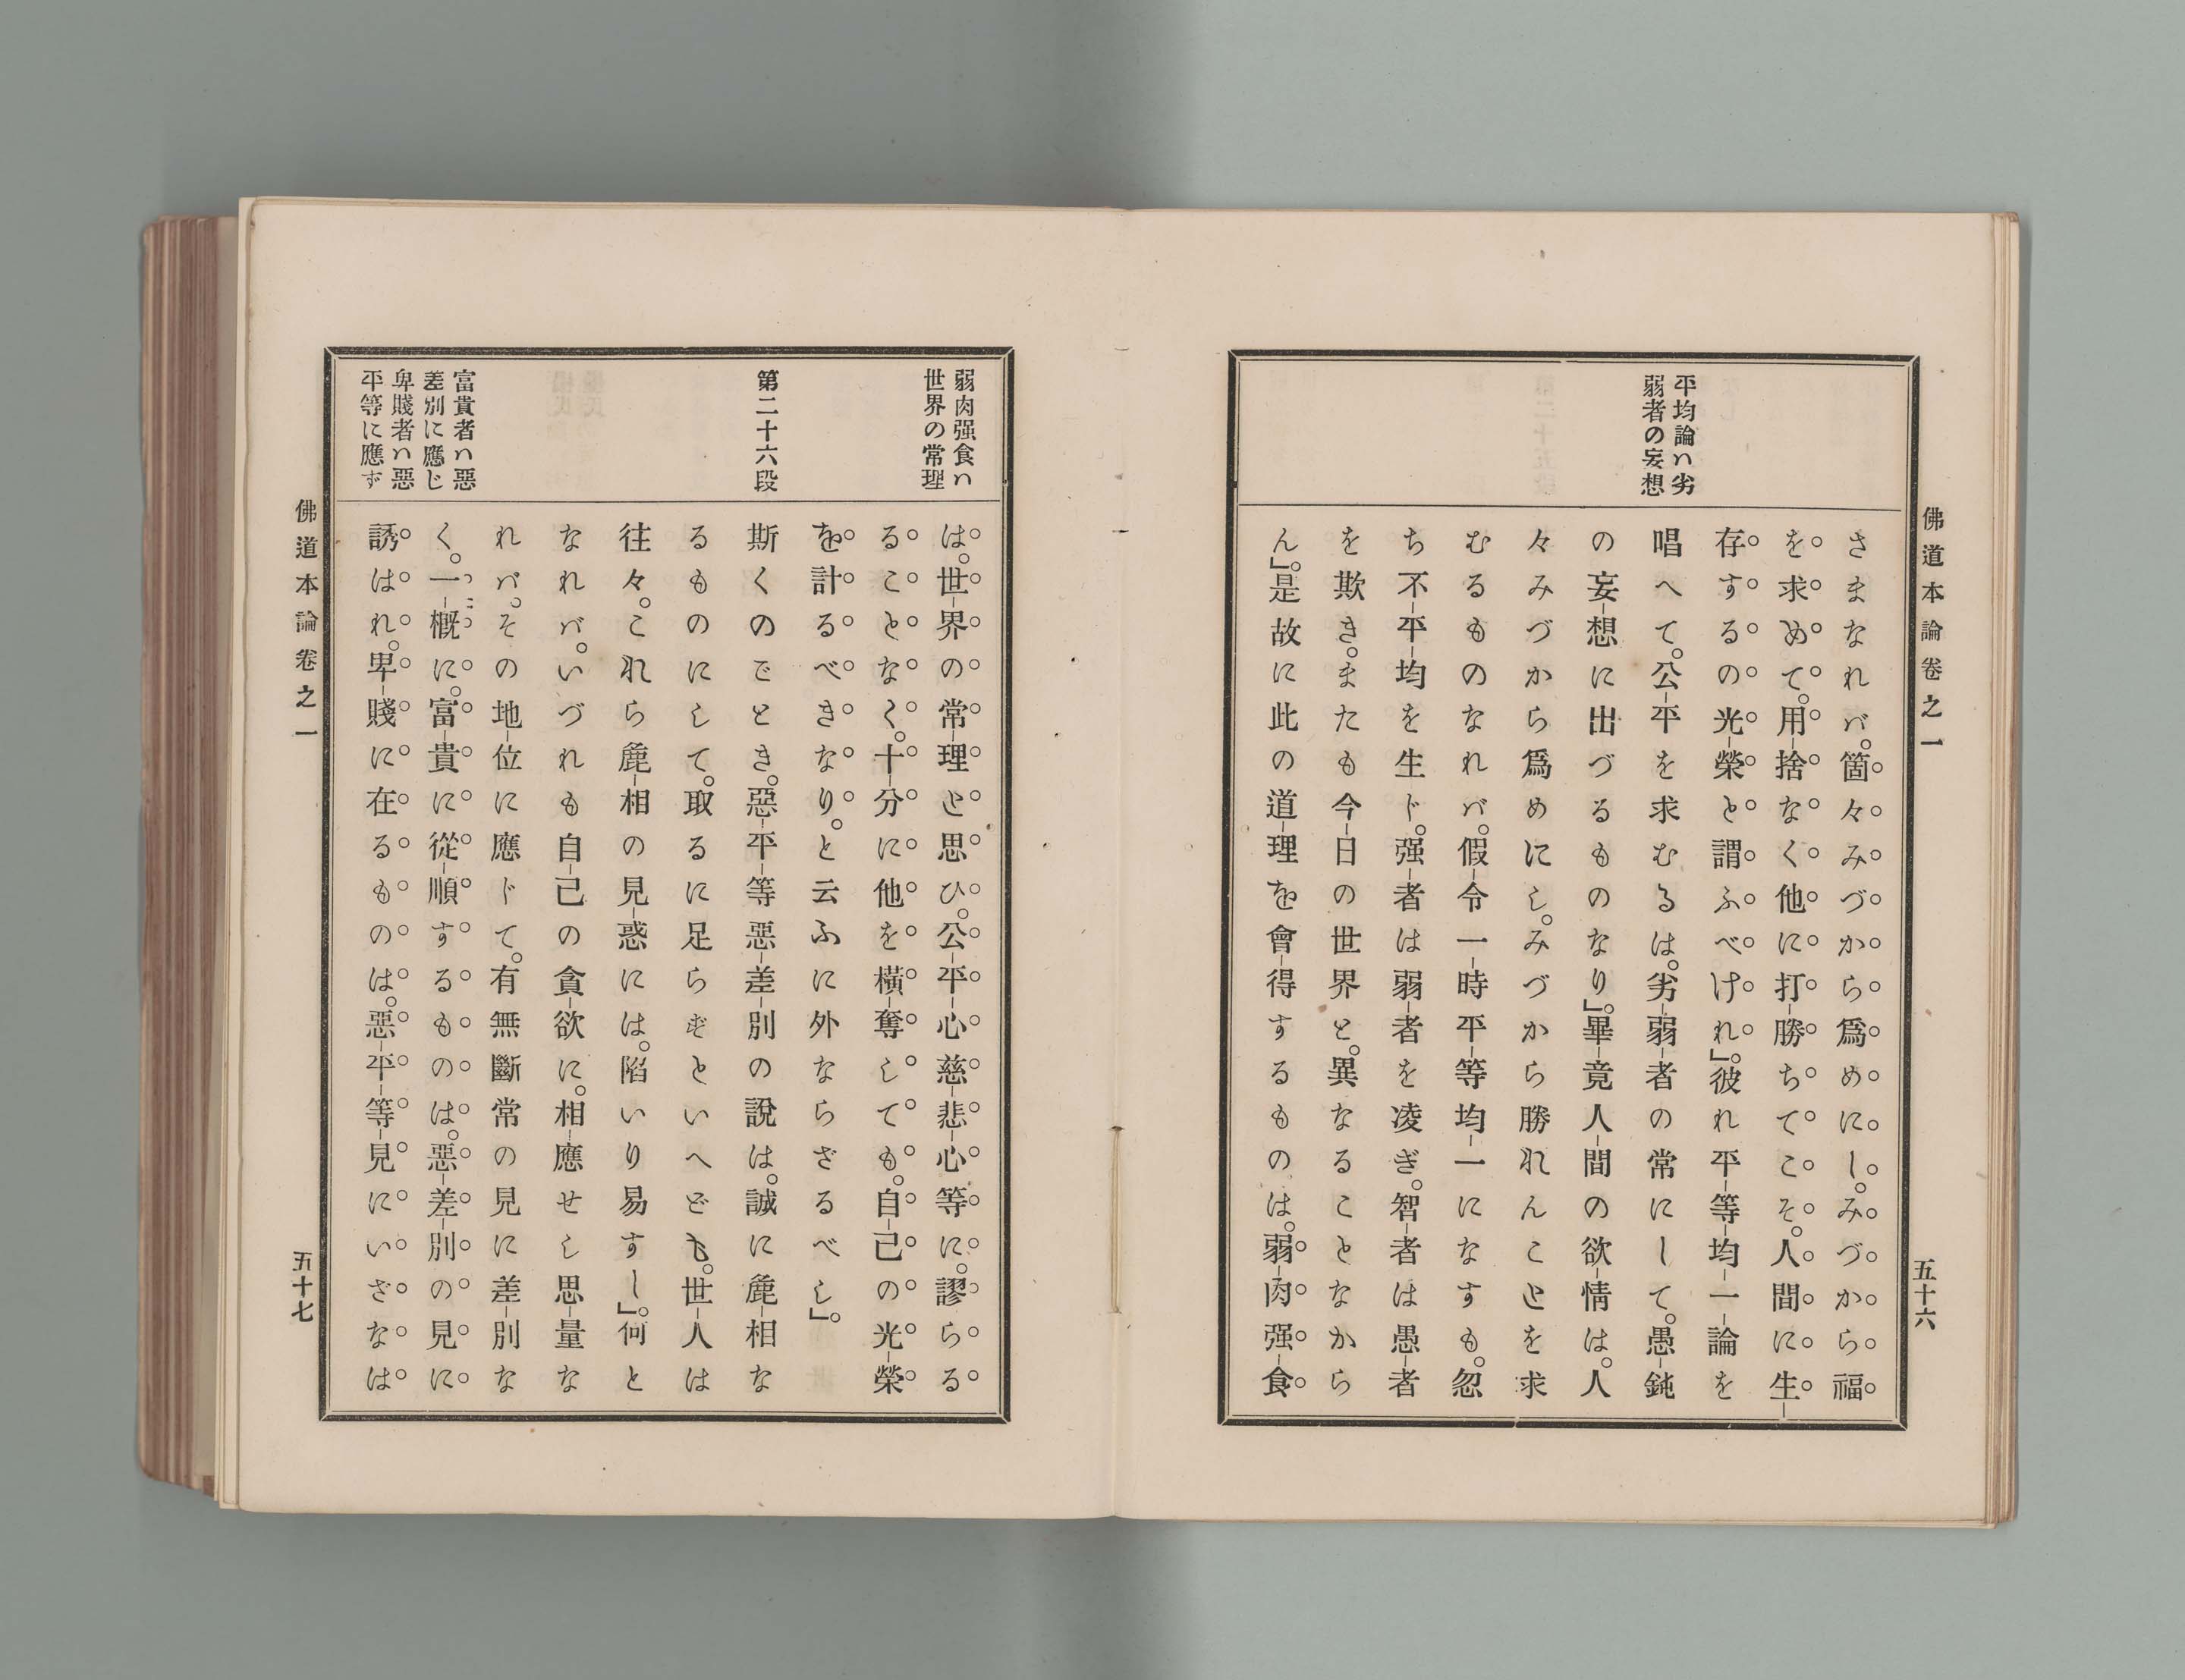 佛道本論卷之一
五十六
平均論ハ劣
弱者の妄想
さまなれバ。箇々みづから爲めにし。みづから福
を求めて。用捨なく他に打勝ちてこそ。人間に生
存するの光榮と謂ふべけれ」。彼れ平等均一論を
唱へて。公平を求むるは。劣弱者の常にして。愚鈍
の妄想に出づるものなり」。畢竟人間の欲情は。人
々みづから爲めにし。みづから勝れんことを求
むるものなれバ。假令一時平等均一になすも。忽
ち不平均を生ド。强者は弱者を凌ぎ。智者は愚者
を欺き。またも今日の世界と。異なることなから
ん」。是故に此の道理を會得するものは。弱肉强食
弱肉强食ハ
世界の常理
は。世界の常理と思ひ。公平心慈悲心等に。謬らる
ることなく。十分に他を橫奪しても。自己の光榮
を計るべきなり。と云ふに外ならざるべし」。
第二十六段
斯くのごとき。惡平等惡差別の說は。誠に麁相な
るものにして。取るに足らずといへども。世人は
往々。これら麁相の見惑には。陷いり易すし」。何と
なれバ。いづれも自己の貪欲に。相應せし思量な
れバ。その地位に應ドて。有無斷常の見に差別な
富貴者ハ惡
差別に應じ
卑賤者ハ惡
平等に應ず
く。一概に。富貴に從順するものは。惡差別の見に
誘はれ。卑賤に在るものは。惡平等見にいざなは
佛道本論卷之一
五十七